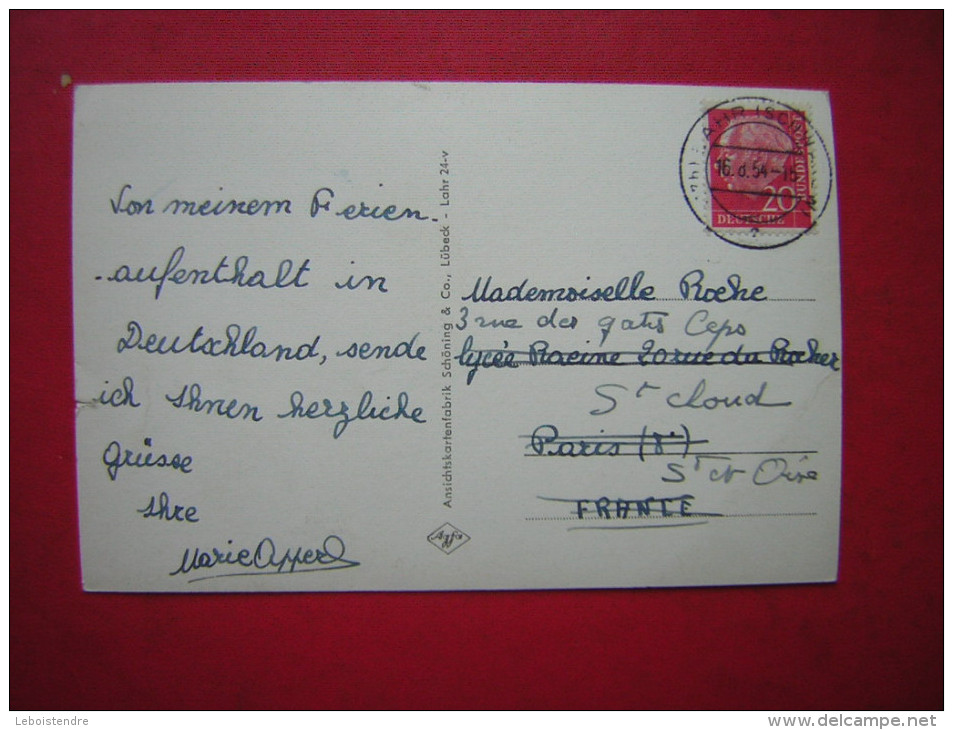 Von meinem Ferien-
-aufenthalt in
Deutschland, sende
ich Ihnen herzliche
Grüsse
Ihre
Marie
Ansichtskartenfabrik Schöning & Co., Lübeck - Lahr 24-v
Agfa
LAHR (SCHWARZW)
16.8.54-15
20
DEUTSCHE
BUNDESPOST
Mademoiselle Roche
3 rue des Ceps
lycée Racine 20 rue du Rocher
St Cloud
Paris (8e)
St et Oise
FRANCE
Leboistendre
www.delcampe.net